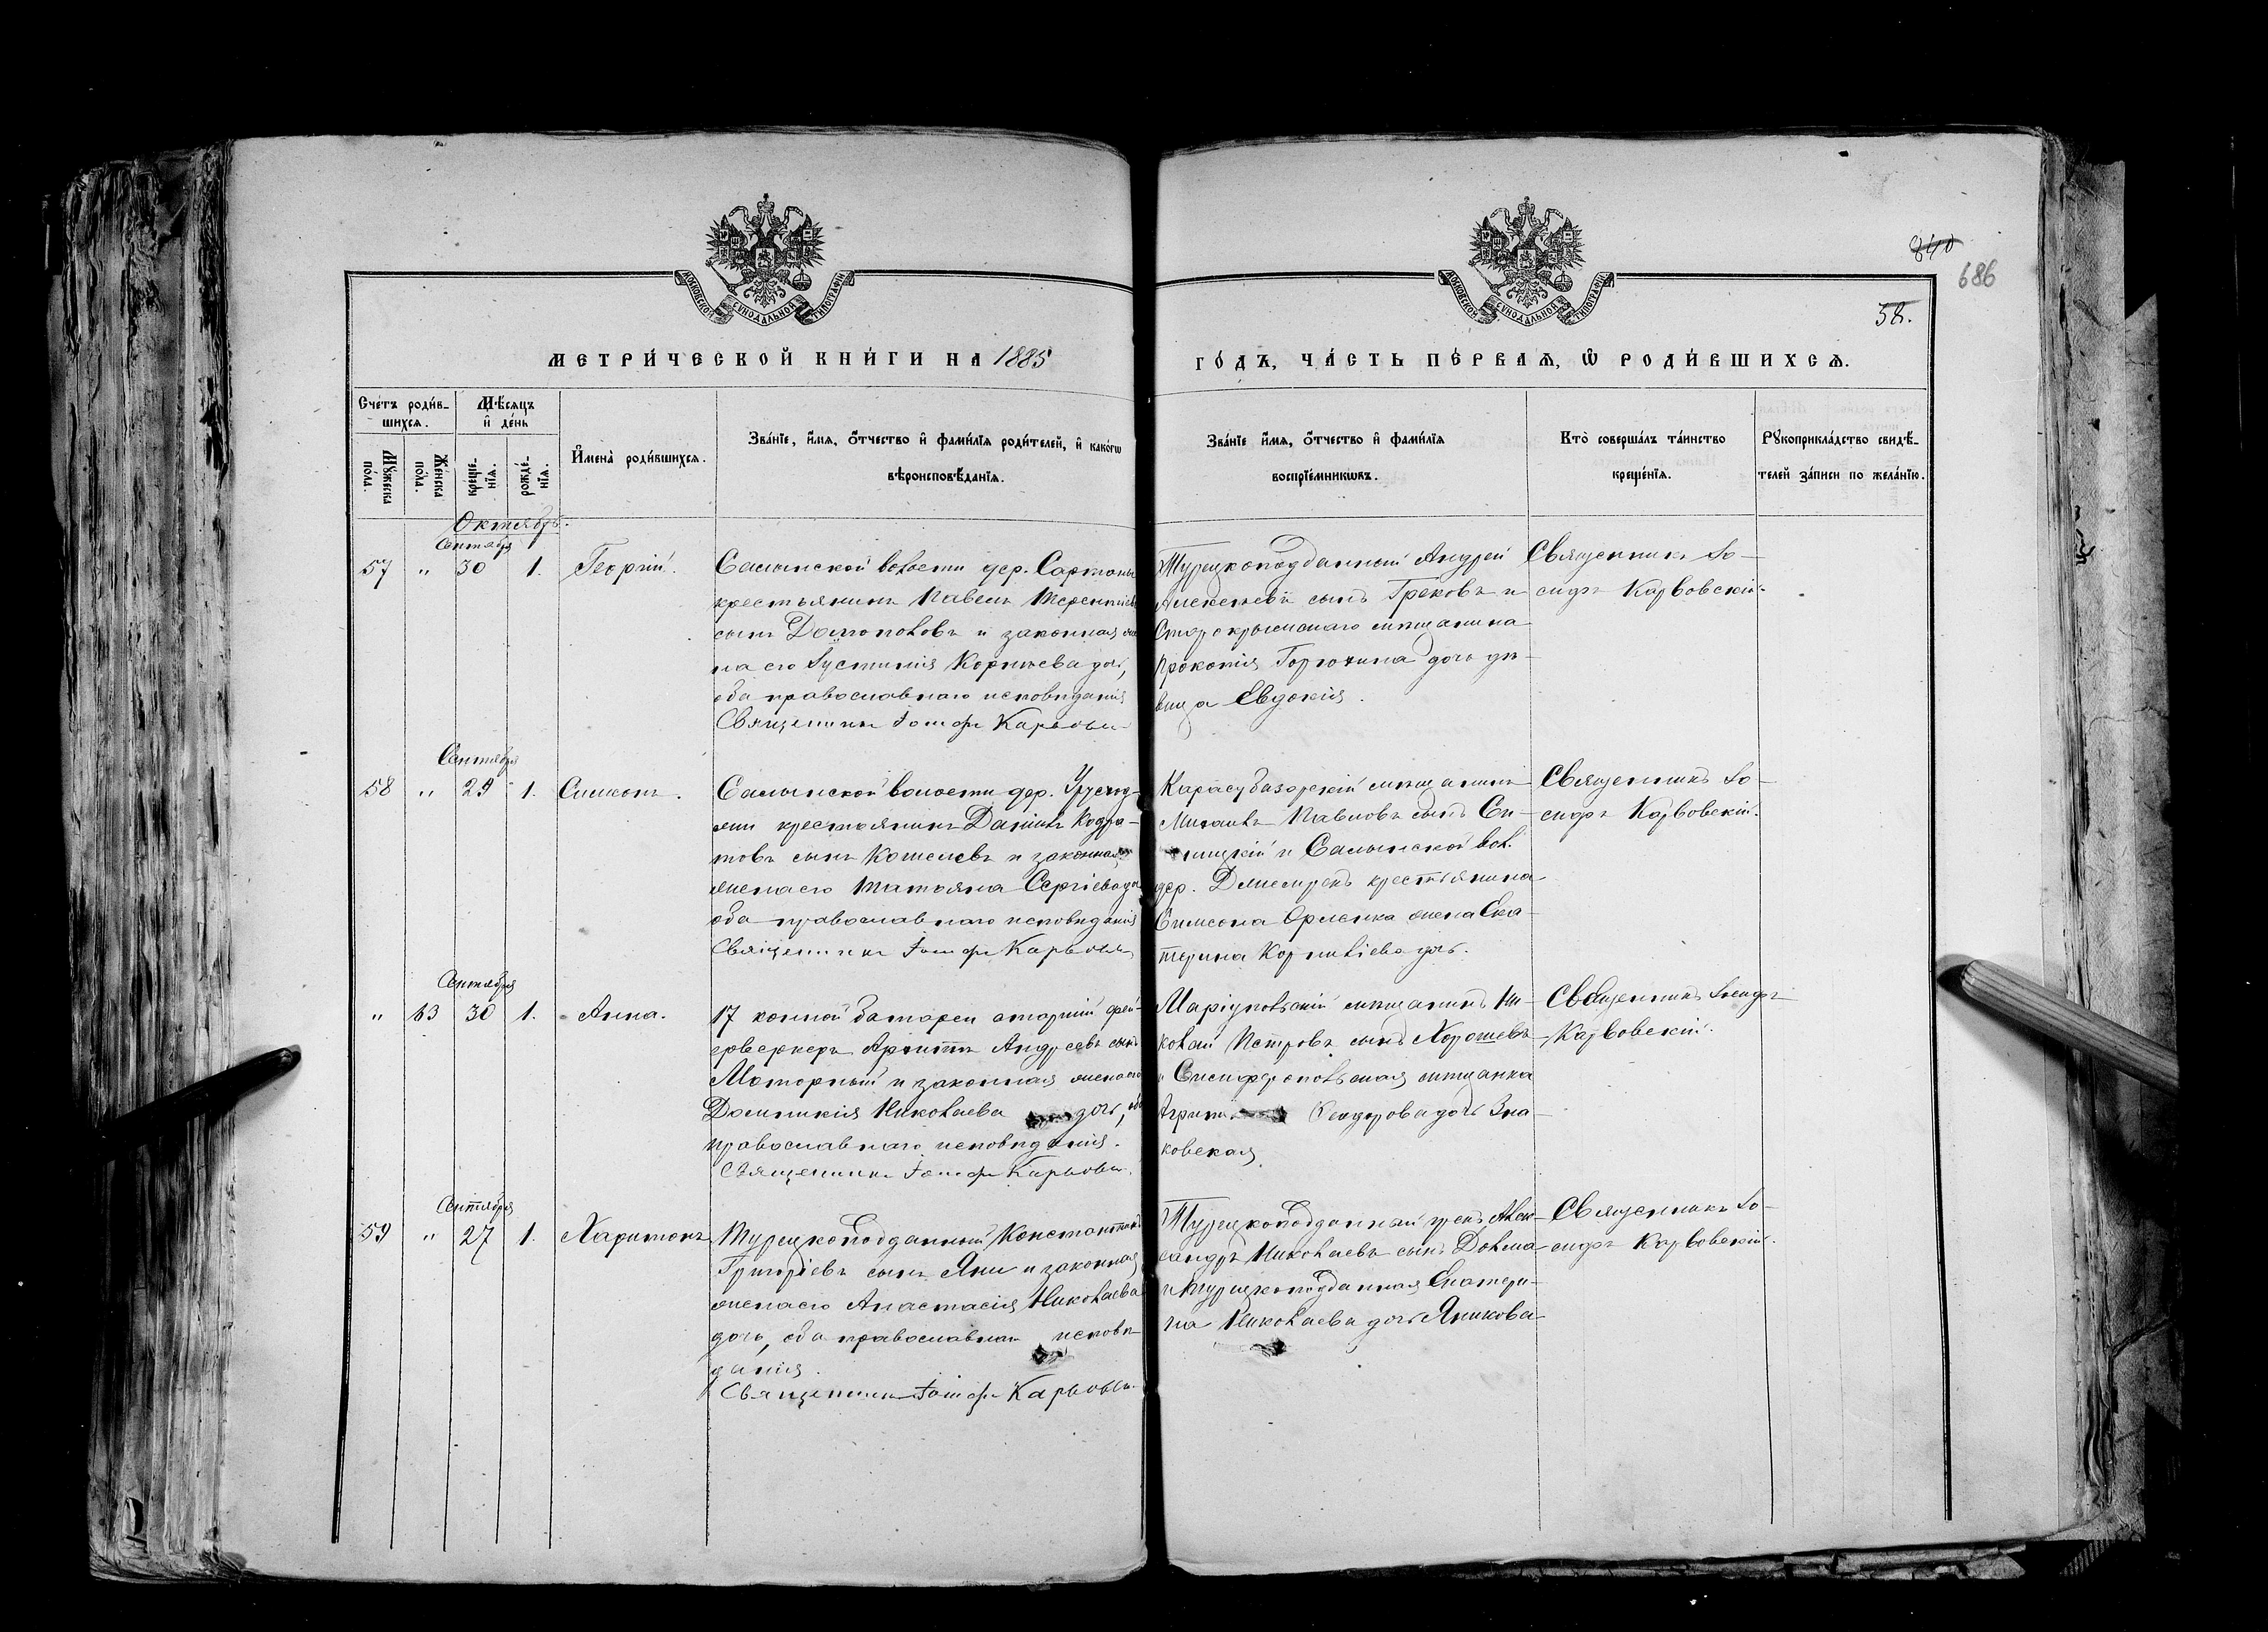 МОСКОВСКОЙ СУНОДАЛЬНОЙ ТИПОГРАФІИ
МОСКОВСКОЙ СУНОДАЛЬНОЙ ТИПОГРАФІИ
840
686
58.
МЕТРИ́ЧЕСКОЙ КНИ́ГИ НА 1885
ГО́ДЪ, ЧА́СТЬ ПЕ́РВАѦ, Ѡ҆ РОДИ́ВШИХСѦ.
Сче́тъ роди́в-
шихсѧ.
Мѣ́сѧцъ
и҆ де́нь
Мꙋ́жеска
по́ла.
Же́нска
по́ла.
креще́-
нїѧ.
рожде́-
нїѧ.
И҆мена̀ роди́вшихсѧ.
Зва́нїе, и҆́мѧ, ѻ҆́тчество и҆ фами́лїѧ роди́телей, и҆ како́гѡ
вѣроисповѣ́данїѧ.
Зва́нїе и҆́мѧ, ѻ҆́тчество и҆ фами́лїѧ
воспрїе́мникѡвъ.
Кто̀ соверша́лъ та́инство
креще́нїѧ.
Рꙋкоприкла́дство свидѣ́-
телей за́писи по жела́нїю.
Октябрь.
Сентября
57 " 30 1. Георгій.
Салынской волости дер. Сартаны
крестьянинъ Павелъ Терентіевъ
сынъ Домополовъ и законная же
на его Іустинія Корнѣева дочь,
оба православнаго исповѣданія
Священникъ Іосифъ Карвовскій
Турецкоподданный Андрей
Алексѣевъ сынъ Грековъ и
Старокрымскаго мѣщанина
Прокопія Горюхина дочь дѣ-
вица Евдокія.
Священникъ Іо-
сифъ Карвовскій.
Сентября
58 " 29 1. Симеонъ.
Салынской волости дер.
крестьянинъ Даніилъ Кодра-
товъ сынъ Кошелевъ и законная
жена его Татьяна Сергіева дочь
оба православнаго исповѣданія
Священникъ Іосифъ Карвовскій
Карасубазарскій мѣщанинъ
Михаилъ Павловъ сынъ
и Салынской вол.
дер. крестьянина
Симеона Орленка жена Ека-
терина Корниліева дочь.
Священникъ Іо-
сифъ Карвовскій.
Сентября
" 63 30 1. Анна.
17 конной батареи старшій фей-
ерверкеръ Архиппъ Андреевъ сынъ
Моторный и законная жена его
Домникія Николаева дочь, оба
православнаго исповѣданія.
Священникъ Іосифъ Карвовскій.
Маріупольскій мѣщанинъ Ни-
колай Петровъ сынъ Хорошевъ
и Симферопольская мѣщанка
Ѳеодорова дочь Зна-
ковская.
Священникъ Іосифъ
Карвовскій.
Сентября
59 " 27 1. Харитонъ
Турецкоподданный Константинъ
Григоріевъ сынъ Яни и законная
жена его Анастасія Николаева
дочь, оба православнаго исповѣ-
данія.
Священникъ Іосифъ Карвовскій
Турецкоподданный грекъ Алек-
сандръ Николаевъ сынъ Долма
и Турецкоподданная Екатери-
на Николаева дочь Яникова
Священникъ Іо-
сифъ Карвовскій.